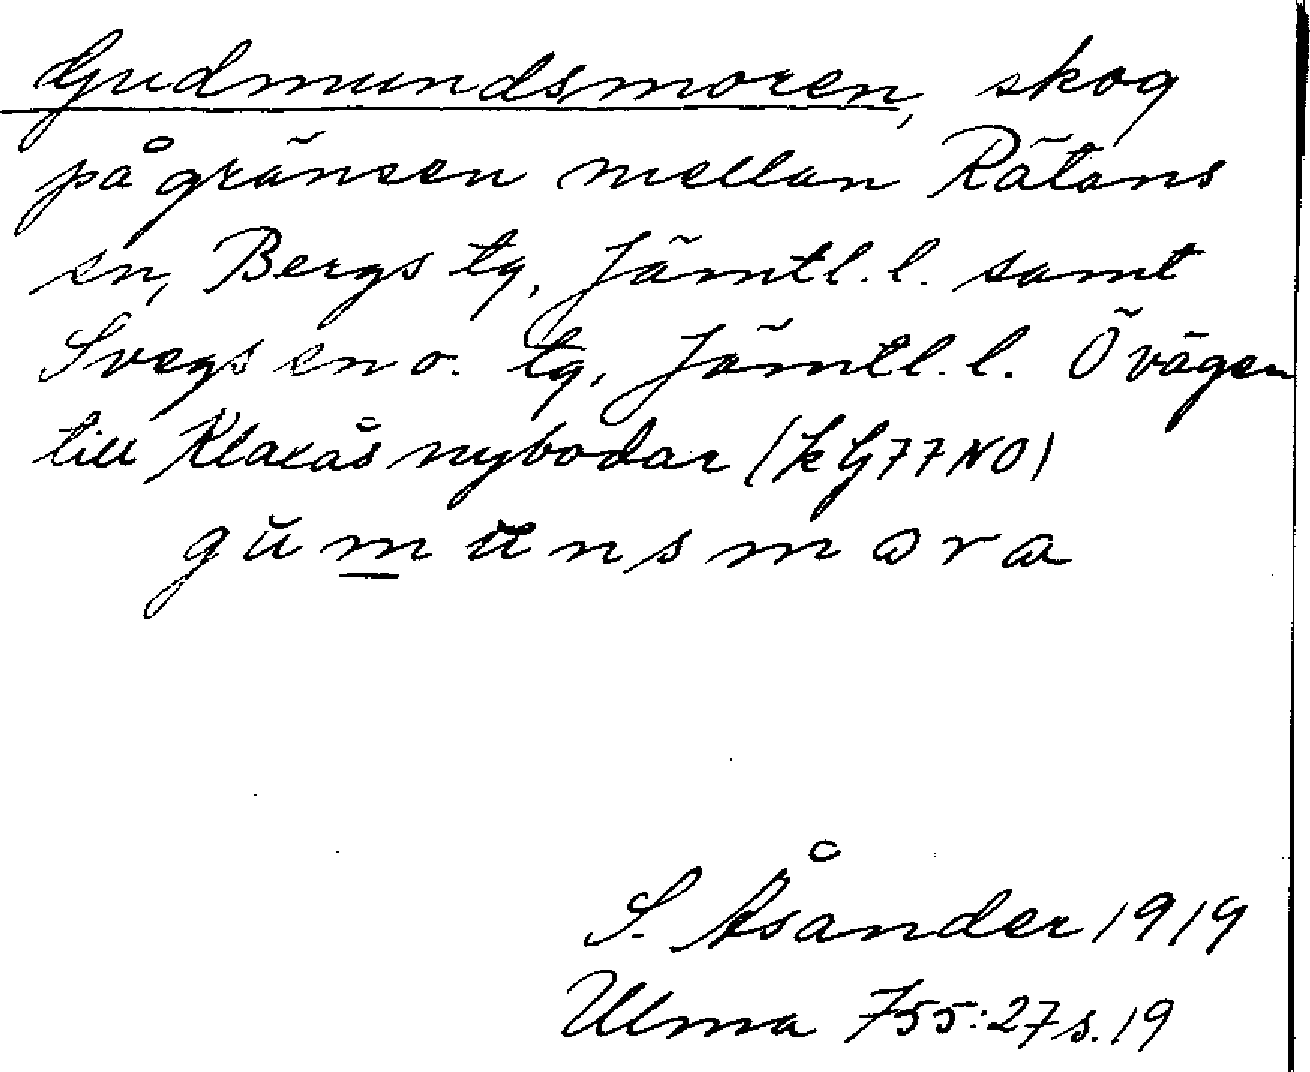 Gudmundsmoren, skog
på gränsen mellan Rätans
sn, Bergs tg, Jämtl. l. samt
Svegs sn o. tg, Jämtl. l. Ö vägen
till Klaxås nybodar (k G77NO)
gŭmŭnsmora
S. Åsander 1919
Ulma 755:27 s. 19